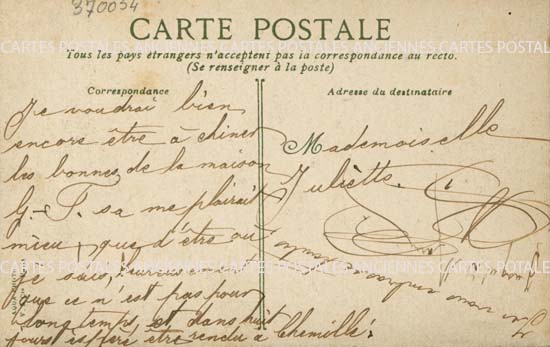 370054
CARTE POSTALE
Tous les pays étrangers n'acceptent pas la correspondance au recto.
(Se renseigner à la poste)
Correspondance
Adresse du destinataire
Je voudrai bien
encore être à chiner
les bonnes de la maison
G-T. sa me plairait
mieu, que d'être où
je suis, heureusement
que ce n'est pas pour
longtemps, et dans huit
jours espère être rendu à Chemillé.
Mademoiselle
Juliette
CARTES POSTALES ANCIENNES CARTES POSTALES ANCIENNES CARTES POSTALES